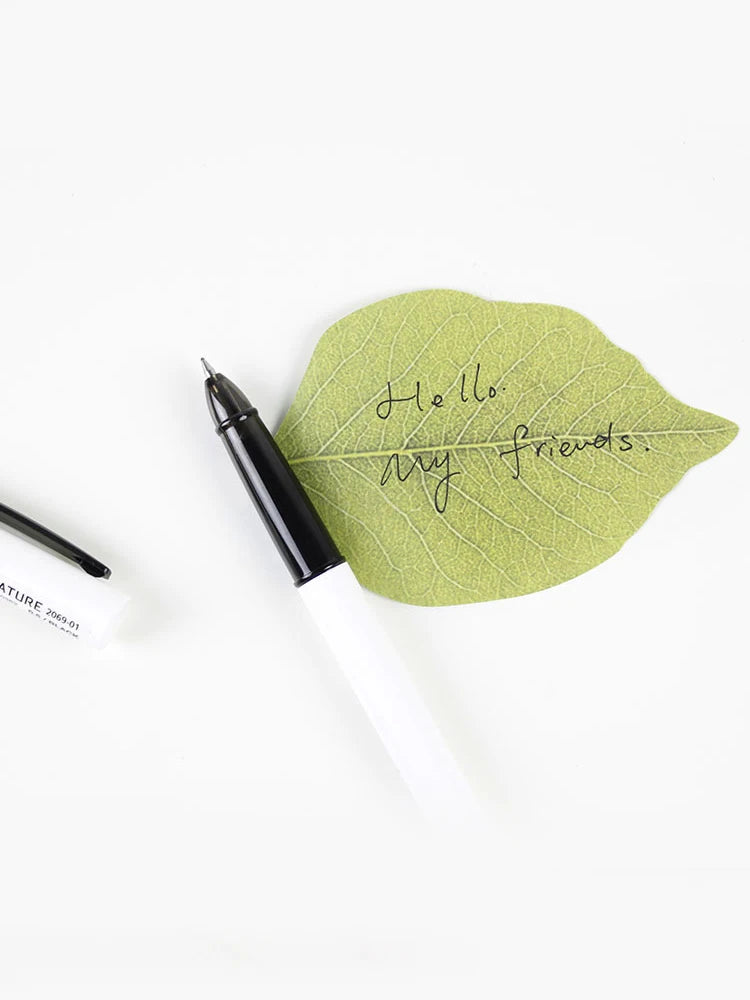 Hello.
My friends.
ATURE 2069-01